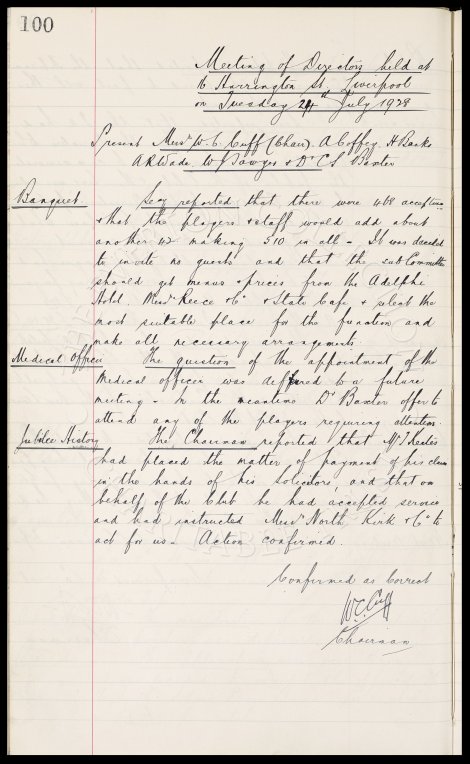 100
Meeting of Directors held at
16 Harrington St, Liverpool
on Tuesday 24th July 1928
Present Messrs W. C. Cuff (Chair). A Coffey, H Banks
A R Wade, W Sawyer & Dr C S Baxter
Banquet. Secy reported that there were 468 acceptances
& that the players & staff would add about
another 42 making 510 in all - It was decided
to invite no guests and that the sub Committee
should get menus & prices from the Adelphi
Hotel. Messrs Reece & Co & State Cafe & select the
most suitable place for the function and
make all necessary arrangements
Medical Officer The question of the appointment of the
Medical Officer was deferred to a future
meeting - In the meantime Dr Baxter offer to
attend any of the players requiring attention.
Jubilee History The Chairman reported that Mr Keates
had placed the matter of payment of his claim
in the hands of his solicitors, and that on
behalf of the Club he had accepted service
and had instructed Messrs North, Kirk & Co to
act for us - Action confirmed.
Confirmed as Correct
W. C. Cuff
Chairman